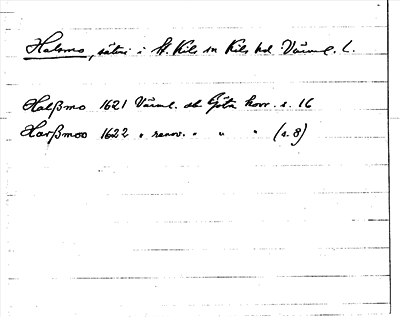 Halsmo, säteri i St. Kils sn Kils hd Värml. L.
Halßmo 1621 Värml. ob Göta horr. s. 16
Harßmoo 1622 " renov. " " " (s. 8)